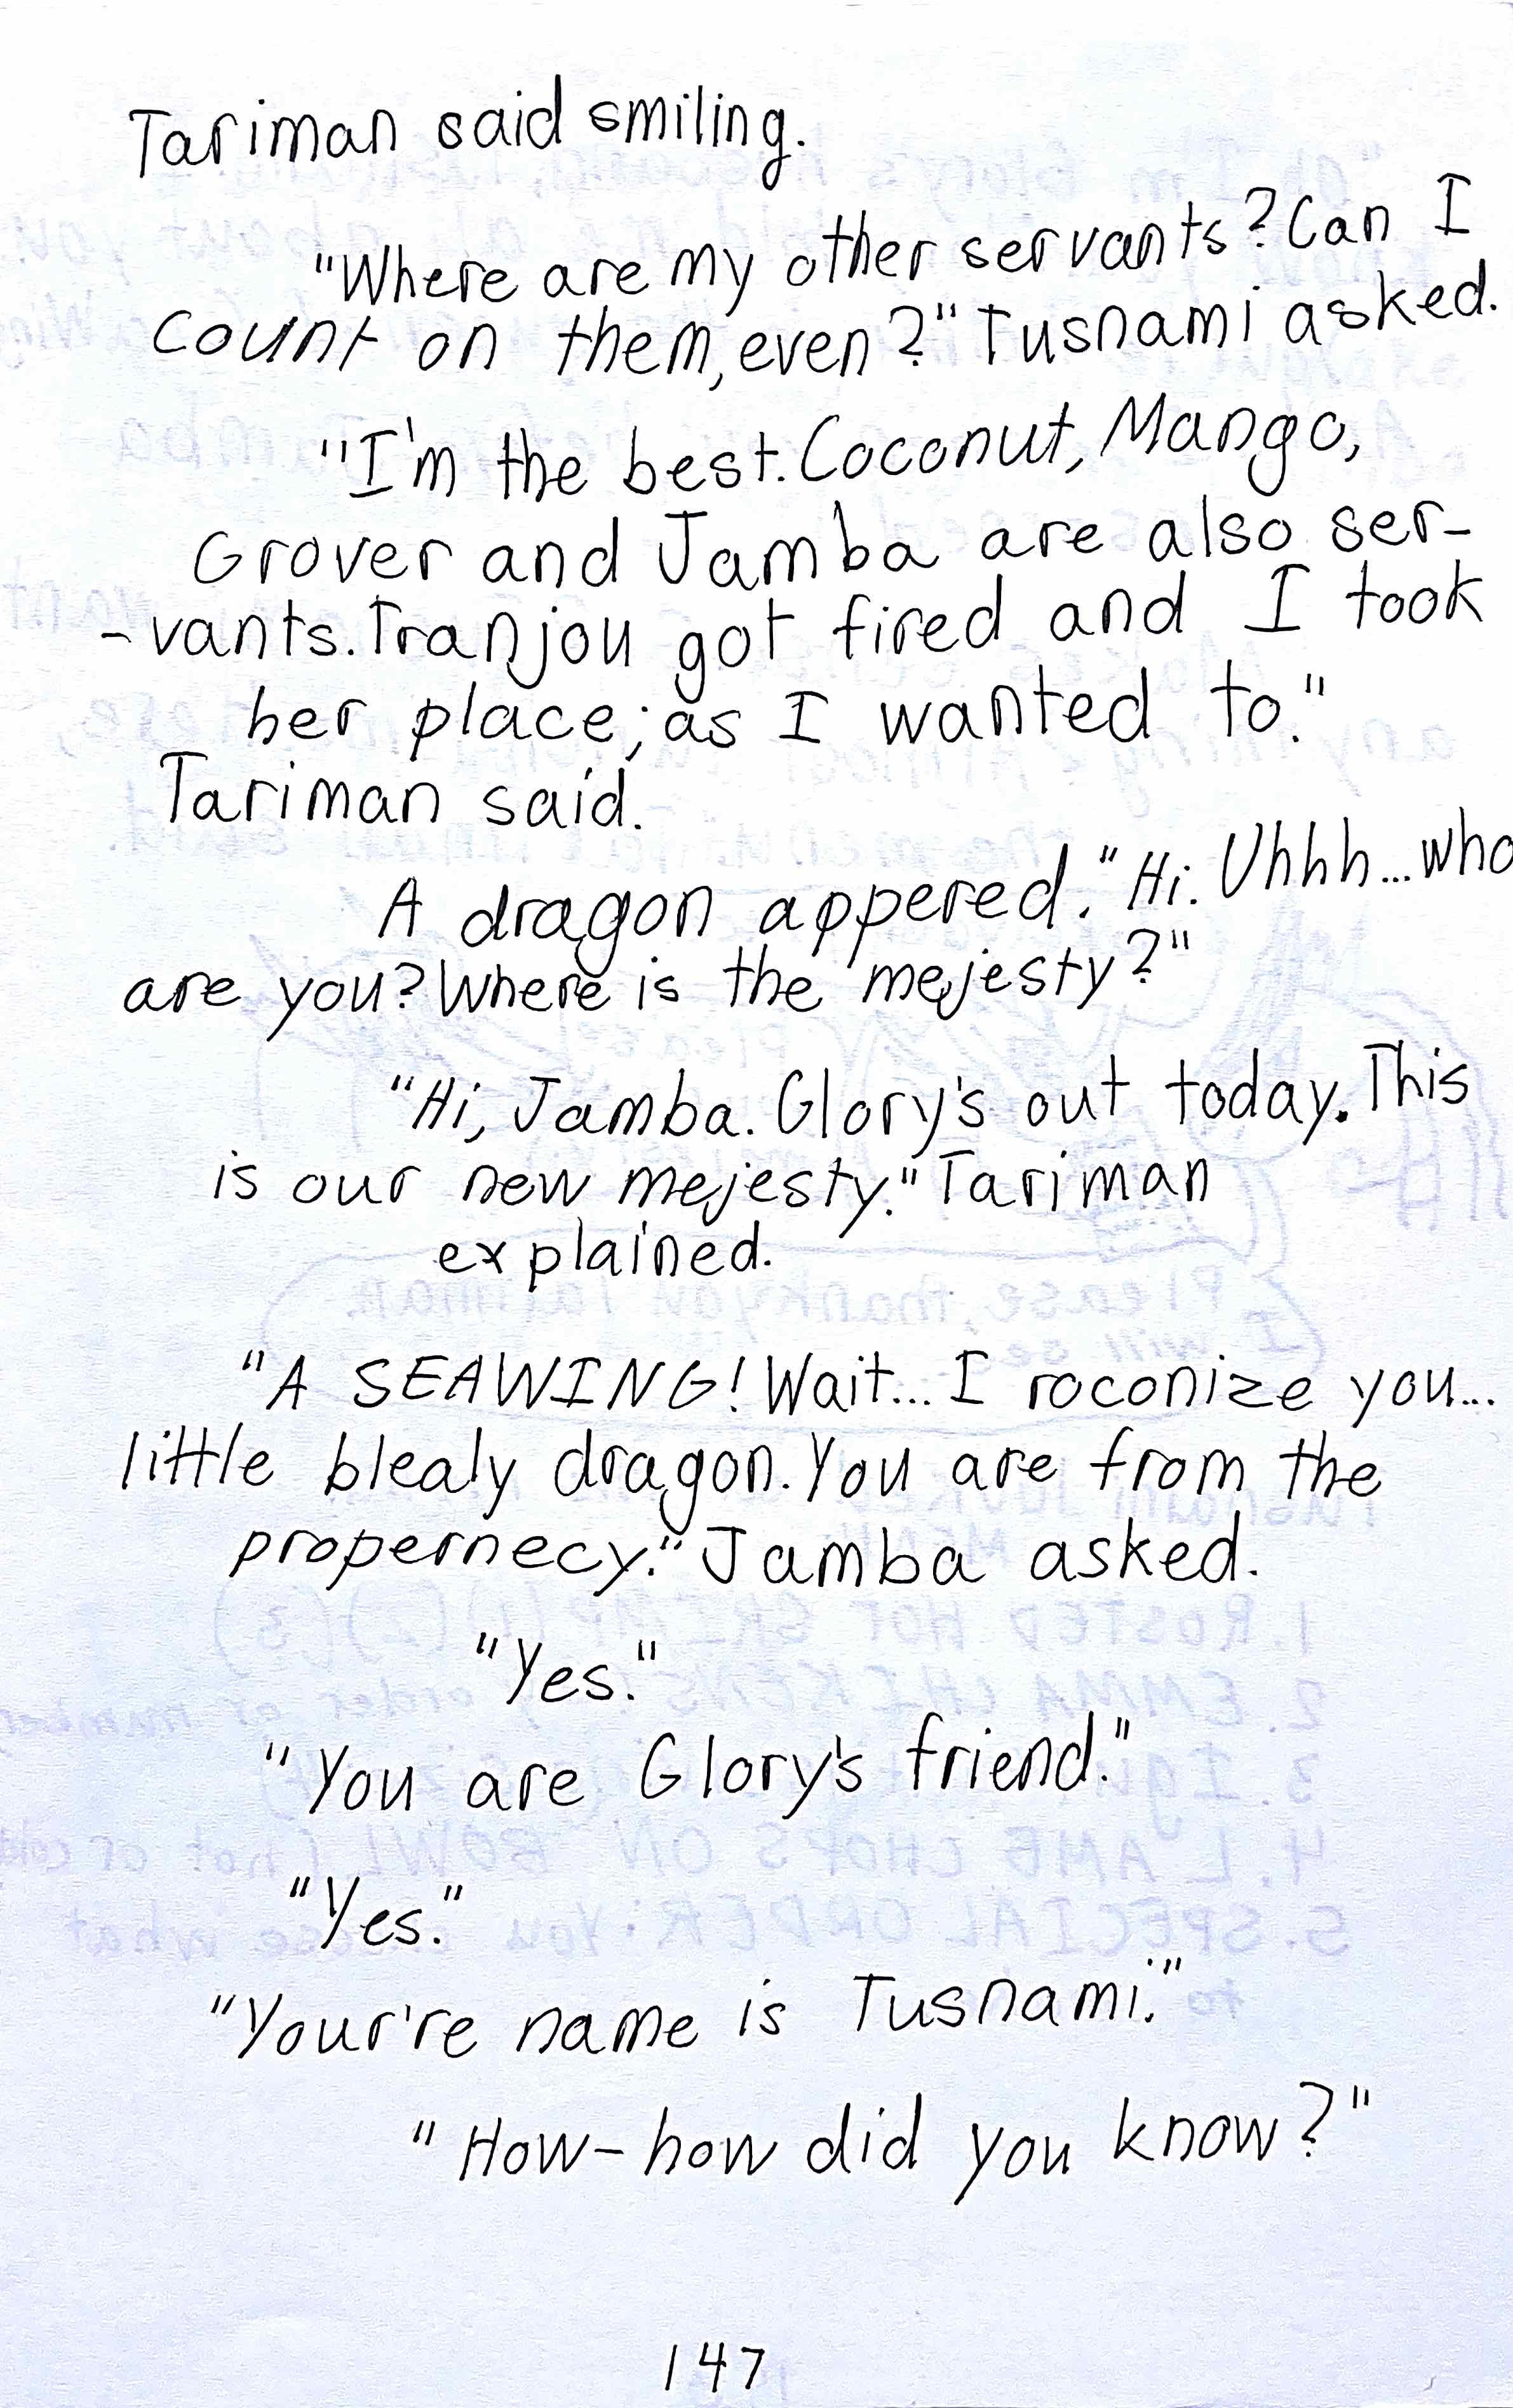 Tariman said smiling.
"Where are my other servants? Can I
count on them, even?" Tusnami asked.
"I'm the best. Coconut, Mango,
Grover and Jamba are also ser-
-vants. Tranjou got fired and I took
her place; as I wanted to."
Tariman said.
A dragon appered. "Hi. Uhhh... who
are you? Where is the mejesty?"
"Hi, Jamba. Glory's out today. This
is our new mejesty." Tariman
explained.
"A SEAWING! Wait... I roconize you...
little blealy dragon. You are from the
propernecy." Jamba asked.
"Yes."
"You are Glory's friend."
"Yes."
"Your're name is Tusnami."
"How-how did you know?"
147